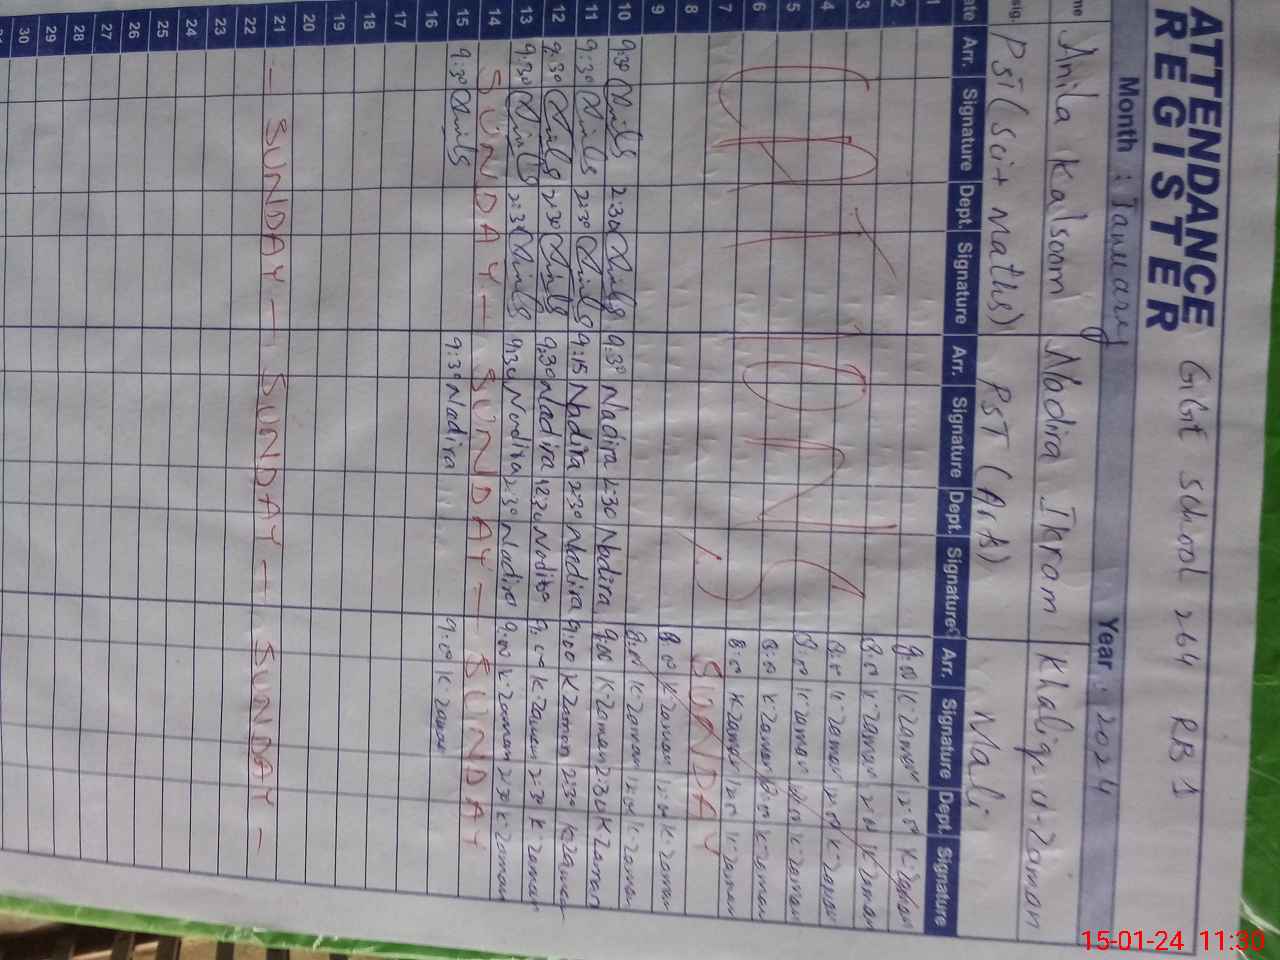 ATTENDANCE REGISTER
GGE School 264 RB 1
Month : January Year : 2024
Anila Kalsoom Nadira Ikram Khaliq-u-Zaman
PST (Sci + Maths) PST (Arts) Mali
Arr. Signature Dept. Signature Arr. Signature Dept. Signature Arr. Signature Dept. Signature
1
2 9:00 K-zaman 12:00 K-zaman
3 8:00 K-zaman K-zaman
4 8:00 K-zaman 12:00 K-zaman
5 8:00 K-zaman K-zaman
6 8:00 K-zaman K-zaman
7 8:00 K-zaman 12:0 K-zaman
8 SUNDAY
9 8:00 K-zaman 12:00 K-zaman
8:00 K-zaman 12:00 K-zaman
10 9:30 Anila 2:30 Anila 9:30 Nadira 2:30 Nadira 9:00 K-zaman 2:30 K-zaman
11 9:30 Anila 2:30 Anila 9:15 Nadira 2:30 Nadira 9:00 K-zaman 2:30 K-zaman
12 9:30 Anila 2:30 Anila 9:30 Nadira 12:30 Nadira 9:00 K-zaman 2:30 K-zaman
13 9:30 Anila 2:30 Anila 9:30 Nadira 2:30 Nadira 9:00 K-zaman 2:30 K-zaman
14 SUNDAY — SUNDAY — SUNDAY
15 9:30 Anila 9:30 Nadira 9:00 K-zaman
16
17
18
19
20
21 — SUNDAY — SUNDAY — SUNDAY —
22
23
24
25
26
27
28
29
30
15-01-24 11:30